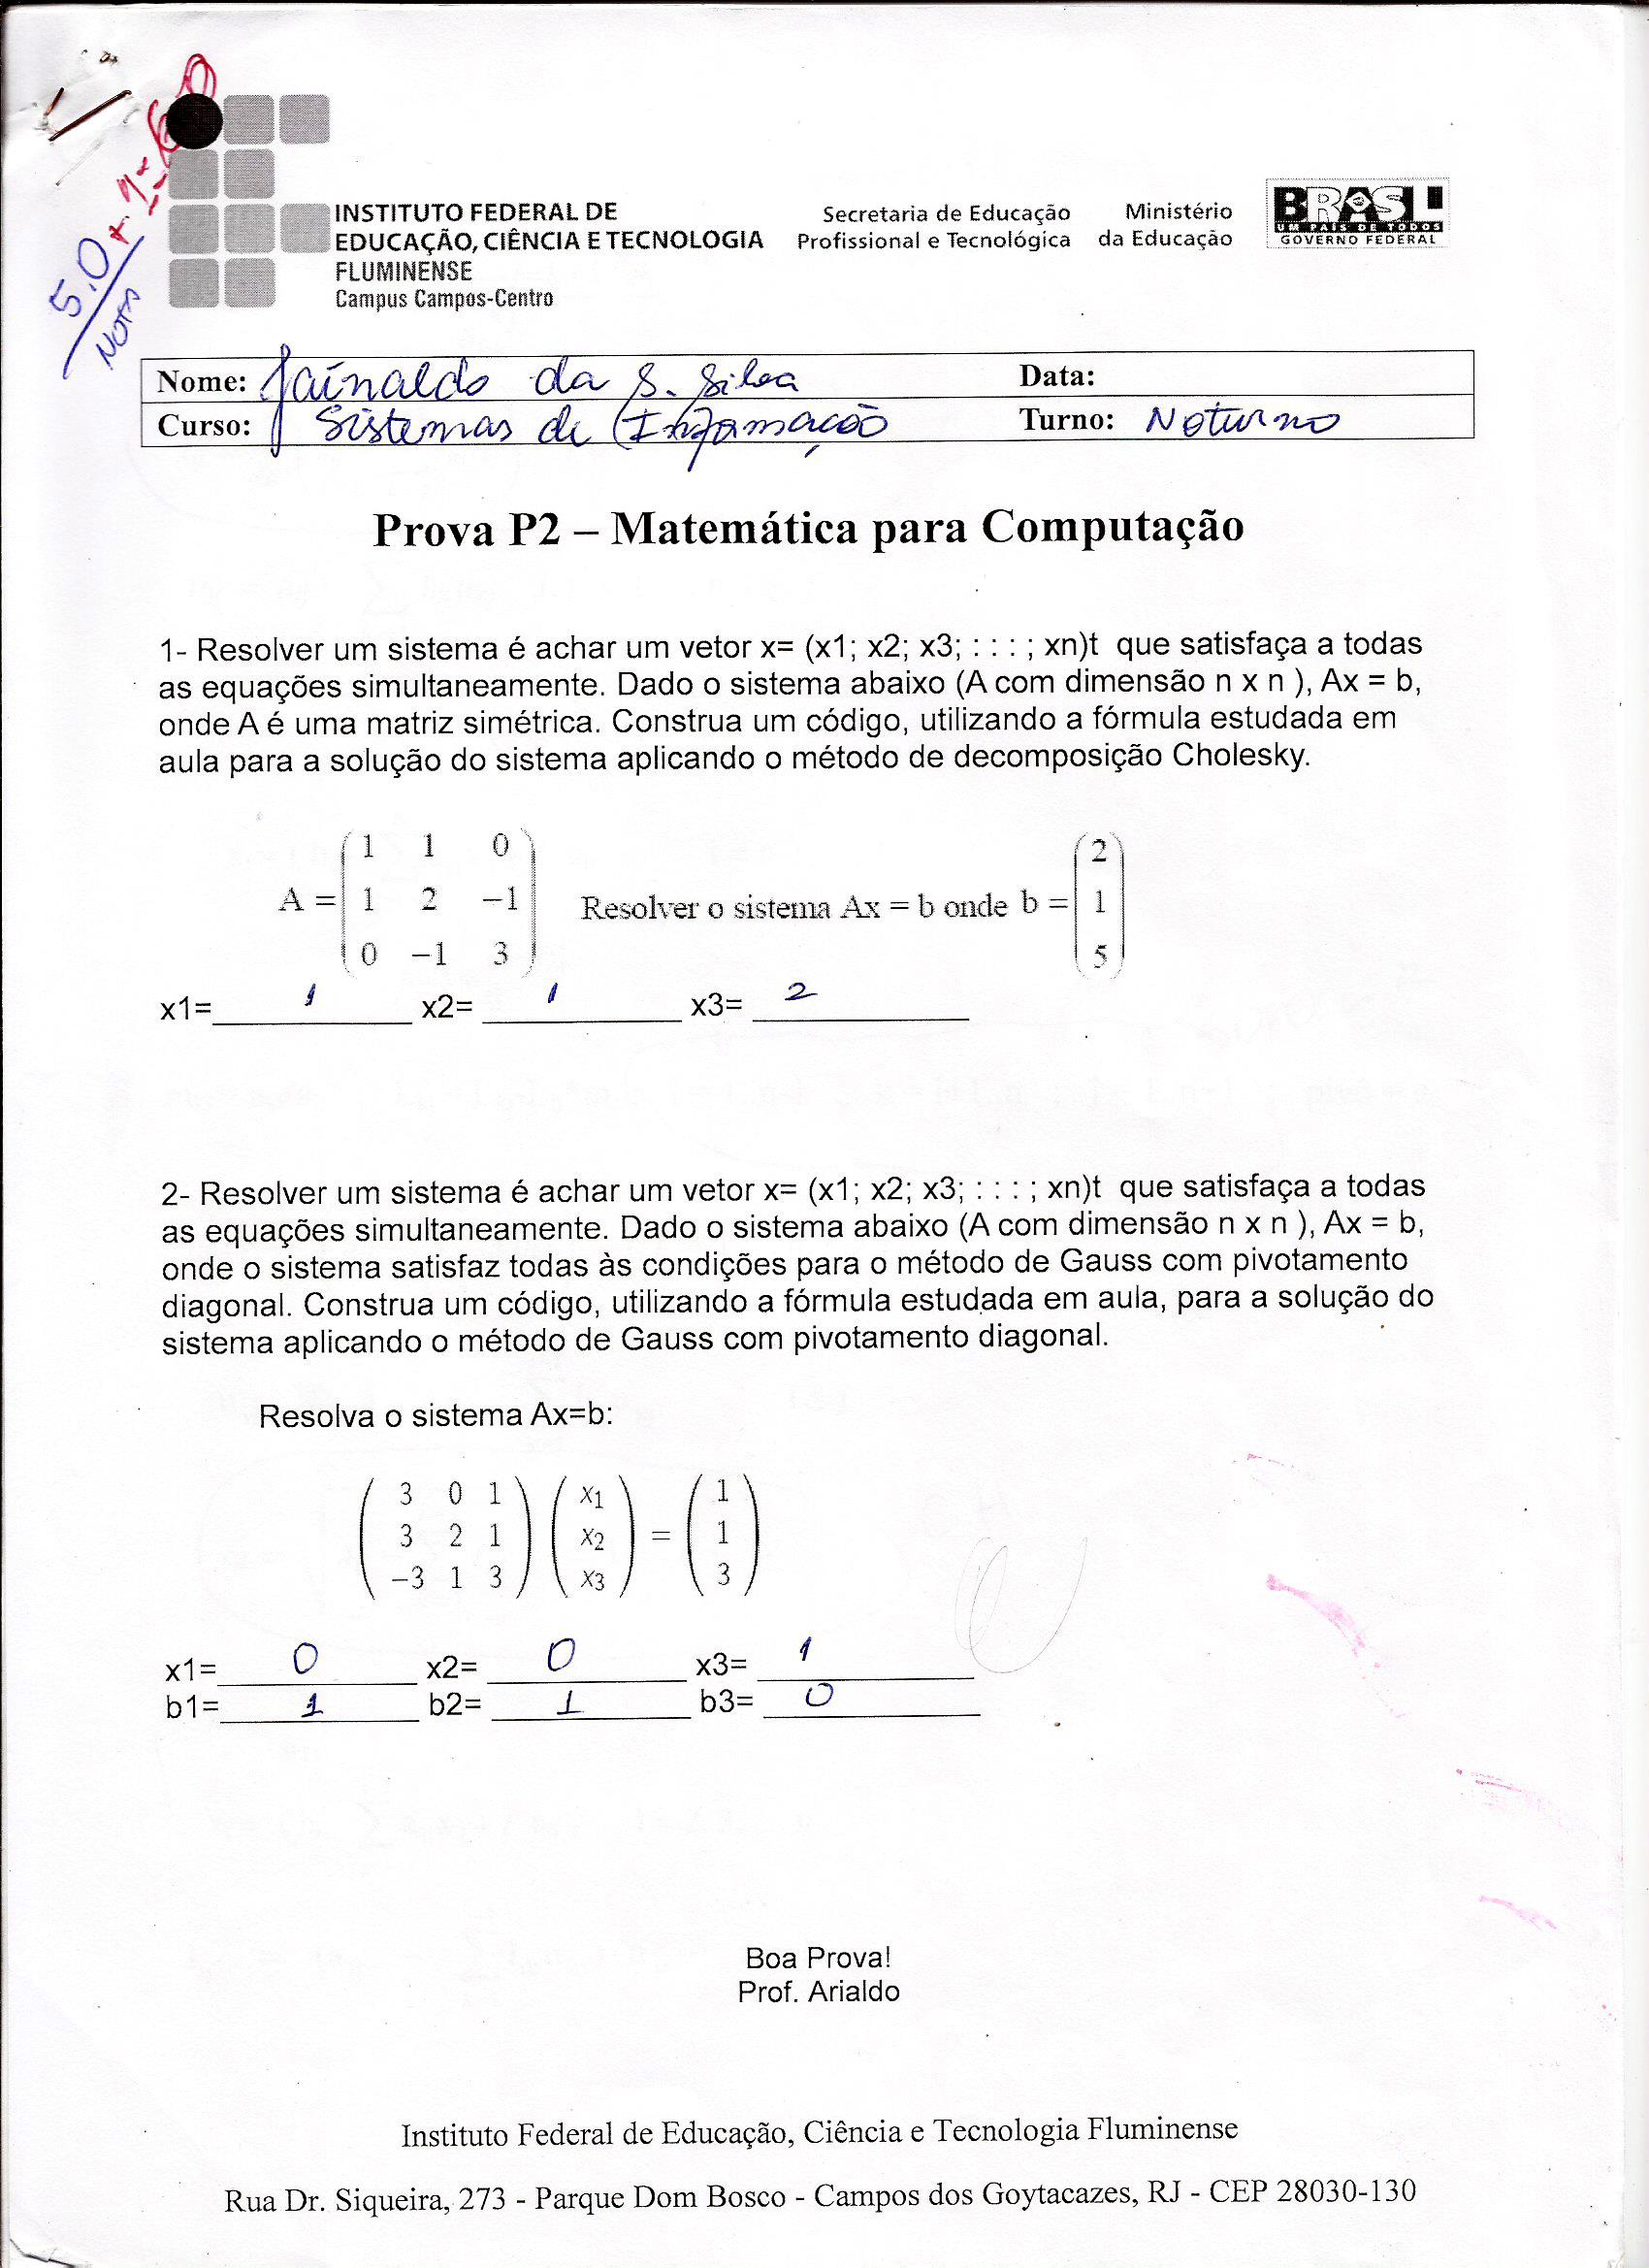 5,0 + 1 = 6,0
NOTA
INSTITUTO FEDERAL DE
EDUCAÇÃO, CIÊNCIA E TECNOLOGIA
FLUMINENSE
Campus Campos-Centro
Secretaria de Educação
Profissional e Tecnológica
Ministério
da Educação
BRASIL
UM PAÍS DE TODOS
GOVERNO FEDERAL
Nome: Jainaldo da S. Silva Data:
Curso: Sistemas de Informação Turno: Noturno
Prova P2 – Matemática para Computação
1- Resolver um sistema é achar um vetor x= (x1; x2; x3; : : : ; xn)t que satisfaça a todas
as equações simultaneamente. Dado o sistema abaixo (A com dimensão n x n ), Ax = b,
onde A é uma matriz simétrica. Construa um código, utilizando a fórmula estudada em
aula para a solução do sistema aplicando o método de decomposição Cholesky.
1 1 0 2
A = 1 2 −1 Resolver o sistema Ax = b onde b = 1
0 −1 3 5
x1= 1 x2= 1 x3= 2
2- Resolver um sistema é achar um vetor x= (x1; x2; x3; : : : ; xn)t que satisfaça a todas
as equações simultaneamente. Dado o sistema abaixo (A com dimensão n x n ), Ax = b,
onde o sistema satisfaz todas às condições para o método de Gauss com pivotamento
diagonal. Construa um código, utilizando a fórmula estudada em aula, para a solução do
sistema aplicando o método de Gauss com pivotamento diagonal.
Resolva o sistema Ax=b:
3 0 1 x1 1
3 2 1 x2 = 1
−3 1 3 x3 3
x1= 0 x2= 0 x3= 1
b1= 1 b2= 1 b3= 0
Boa Prova!
Prof. Arialdo
Instituto Federal de Educação, Ciência e Tecnologia Fluminense
Rua Dr. Siqueira, 273 - Parque Dom Bosco - Campos dos Goytacazes, RJ - CEP 28030-130